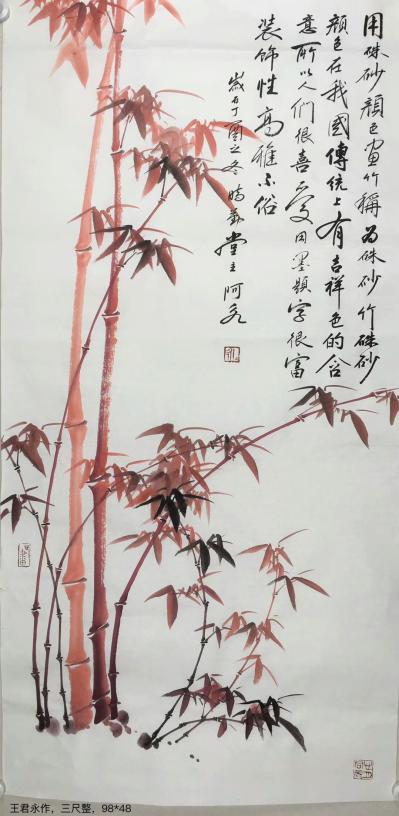 用硃砂顏色畫竹稱为硃砂竹硃砂
顏色在我國傳統上有吉祥色的含
意所以人们很喜爱用墨題字很富
装飾性高雅不俗
歲在丁酉之冬
堂主阿永
王君永作，三尺整，98*48